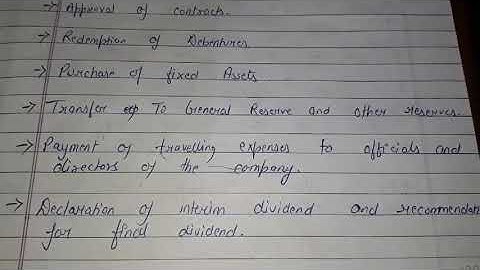 → Approval of contracts.
→ Redemption of Debentures
→ Purchase of fixed Assets
→ Transfer To General Reserve and other reserves.
→ Payment of travelling expenses to officials and
directors of the company.
→ Declaration of interim dividend and recommendat
for final dividend.